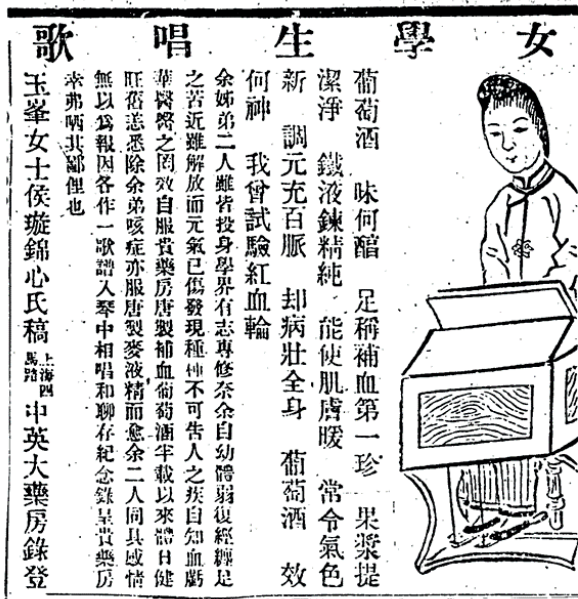 女學生唱歌
葡萄酒　味何醇　足稱補血第一珍　果漿提
潔淨　鐵液鍊精純　能使肌膚暖　常令氣色
新　調元充百脈　却病壯全身　葡萄酒　效
何神　我曾試驗紅血輪
余姊弟二人雖皆投身學界有志專修奈余自幼體弱復經纏足
之苦近雖解放而元氣已傷發現種種不可告人之疾自知血虧
華醫醫之罔效自服貴藥房唐製補血葡萄酒半載以來體日健
旺宿恙悉除余弟咳症亦服唐製麥液精而愈余二人同具感情
無以爲報因各作一歌譜入琴中相唱和聊存紀念錄呈貴藥房
幸弗哂其鄙俚也
玉峯女士侯璇錦心氏稿　上海四馬路　中英大藥房錄登